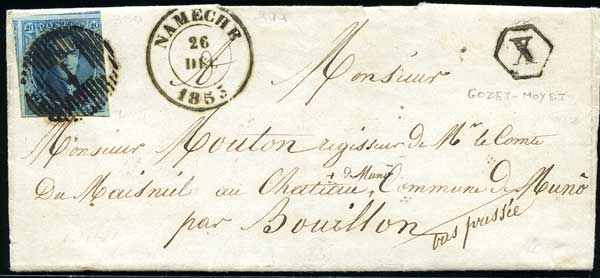 350
POSTES
NAMECHE
26
DEC
1853
X
GOZEY-MOYET
Monsieur
Monsieur Mouton regisseur de Mr. le Comte
+ de Muno
Du Maisniel au Chateau, Commune de Muno
par Bouillon
pas pressée